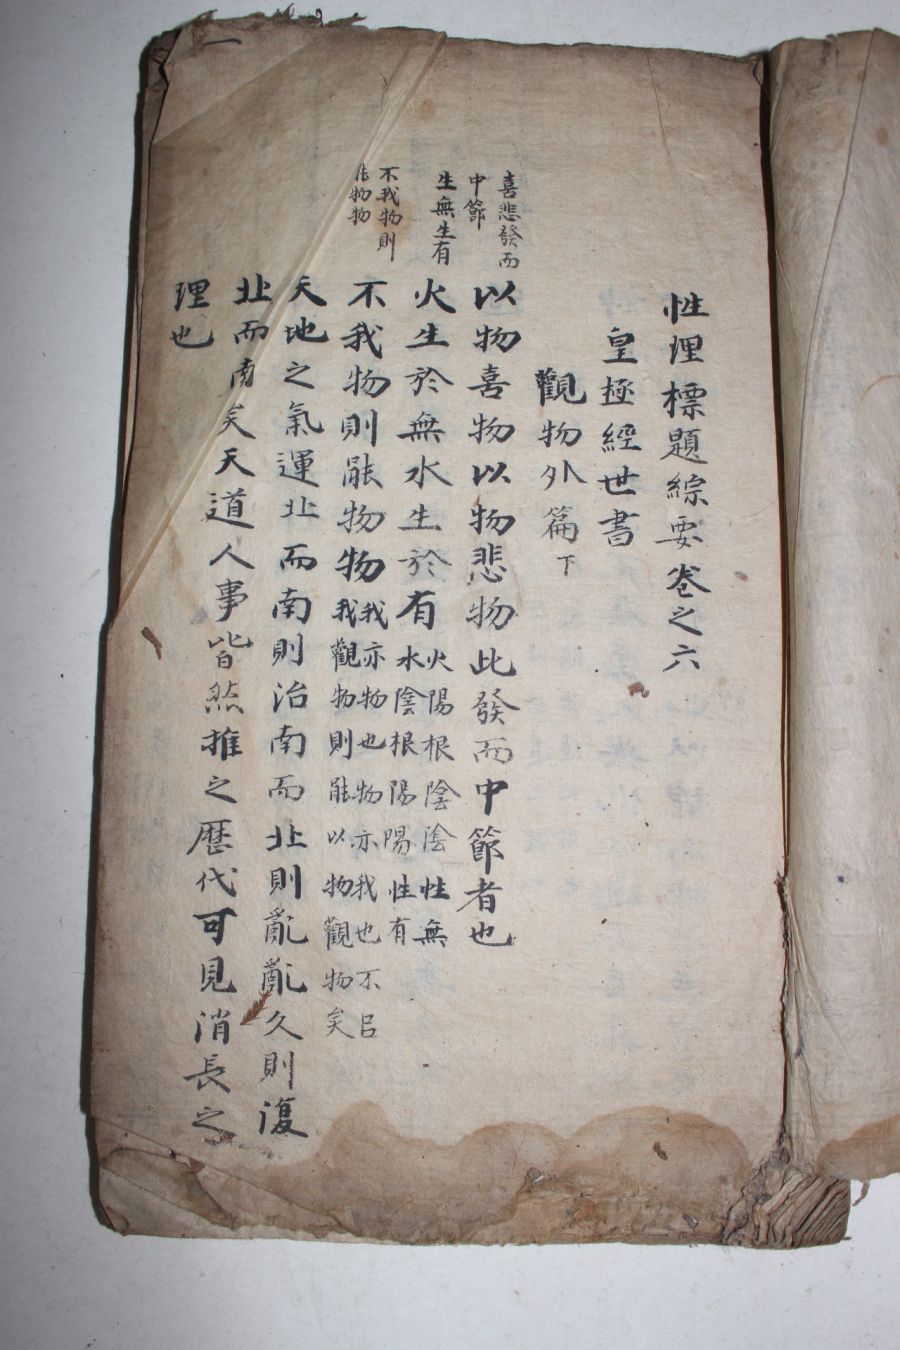 性理標題綜要卷之六
皇極經世書
觀物外篇下
喜悲發而
中節
以物喜物以物悲物此發而中節者也
生無生有
火生於無水生於有
火陽根陰陰性無
水陰根陽陽性有
不我物則
能物物
不我物則能物物
我亦物也物亦我也不㠯
我觀物則能以物觀物矣
天地之氣運北而南則治南而北則亂亂久則復
北而南矣天道人事皆然推之歷代可見消長之
理也